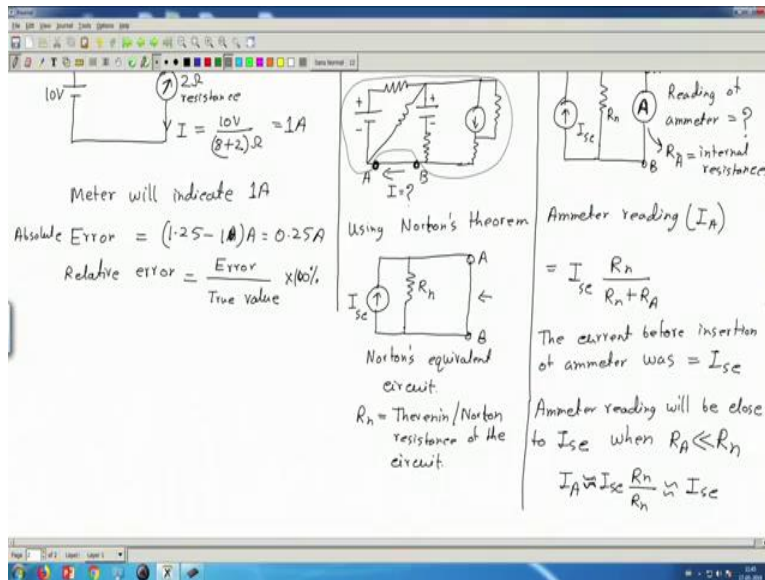 Journal
File Edit View Journal Tools Options Help
Sans Normal 12
10V
2Ω
resistance
I = 10V / (8+2) Ω = 1A
Meter will indicate 1A
Absolute Error = (1.25 - 1) A = 0.25A
Relative error = Error / True value × 100%
+
-
+
-
A
B
I = ?
Using Norton's theorem
A
Rn
Isc
B
Norton's equivalent
circuit.
Rn = Thevenin/Norton
resistance of the
circuit.
Isc
Rn
A
Reading of
ammeter = ?
RA = internal
resistance
B
Ammeter reading (IA)
= Isc Rn / Rn + RA
The current before insertion
of ammeter was = Isc
Ammeter reading will be close
to Isc when RA ≪ Rn
IA ≈ Isc Rn / Rn ≈ Isc
Page 2 of 2 Layer: Layer 1